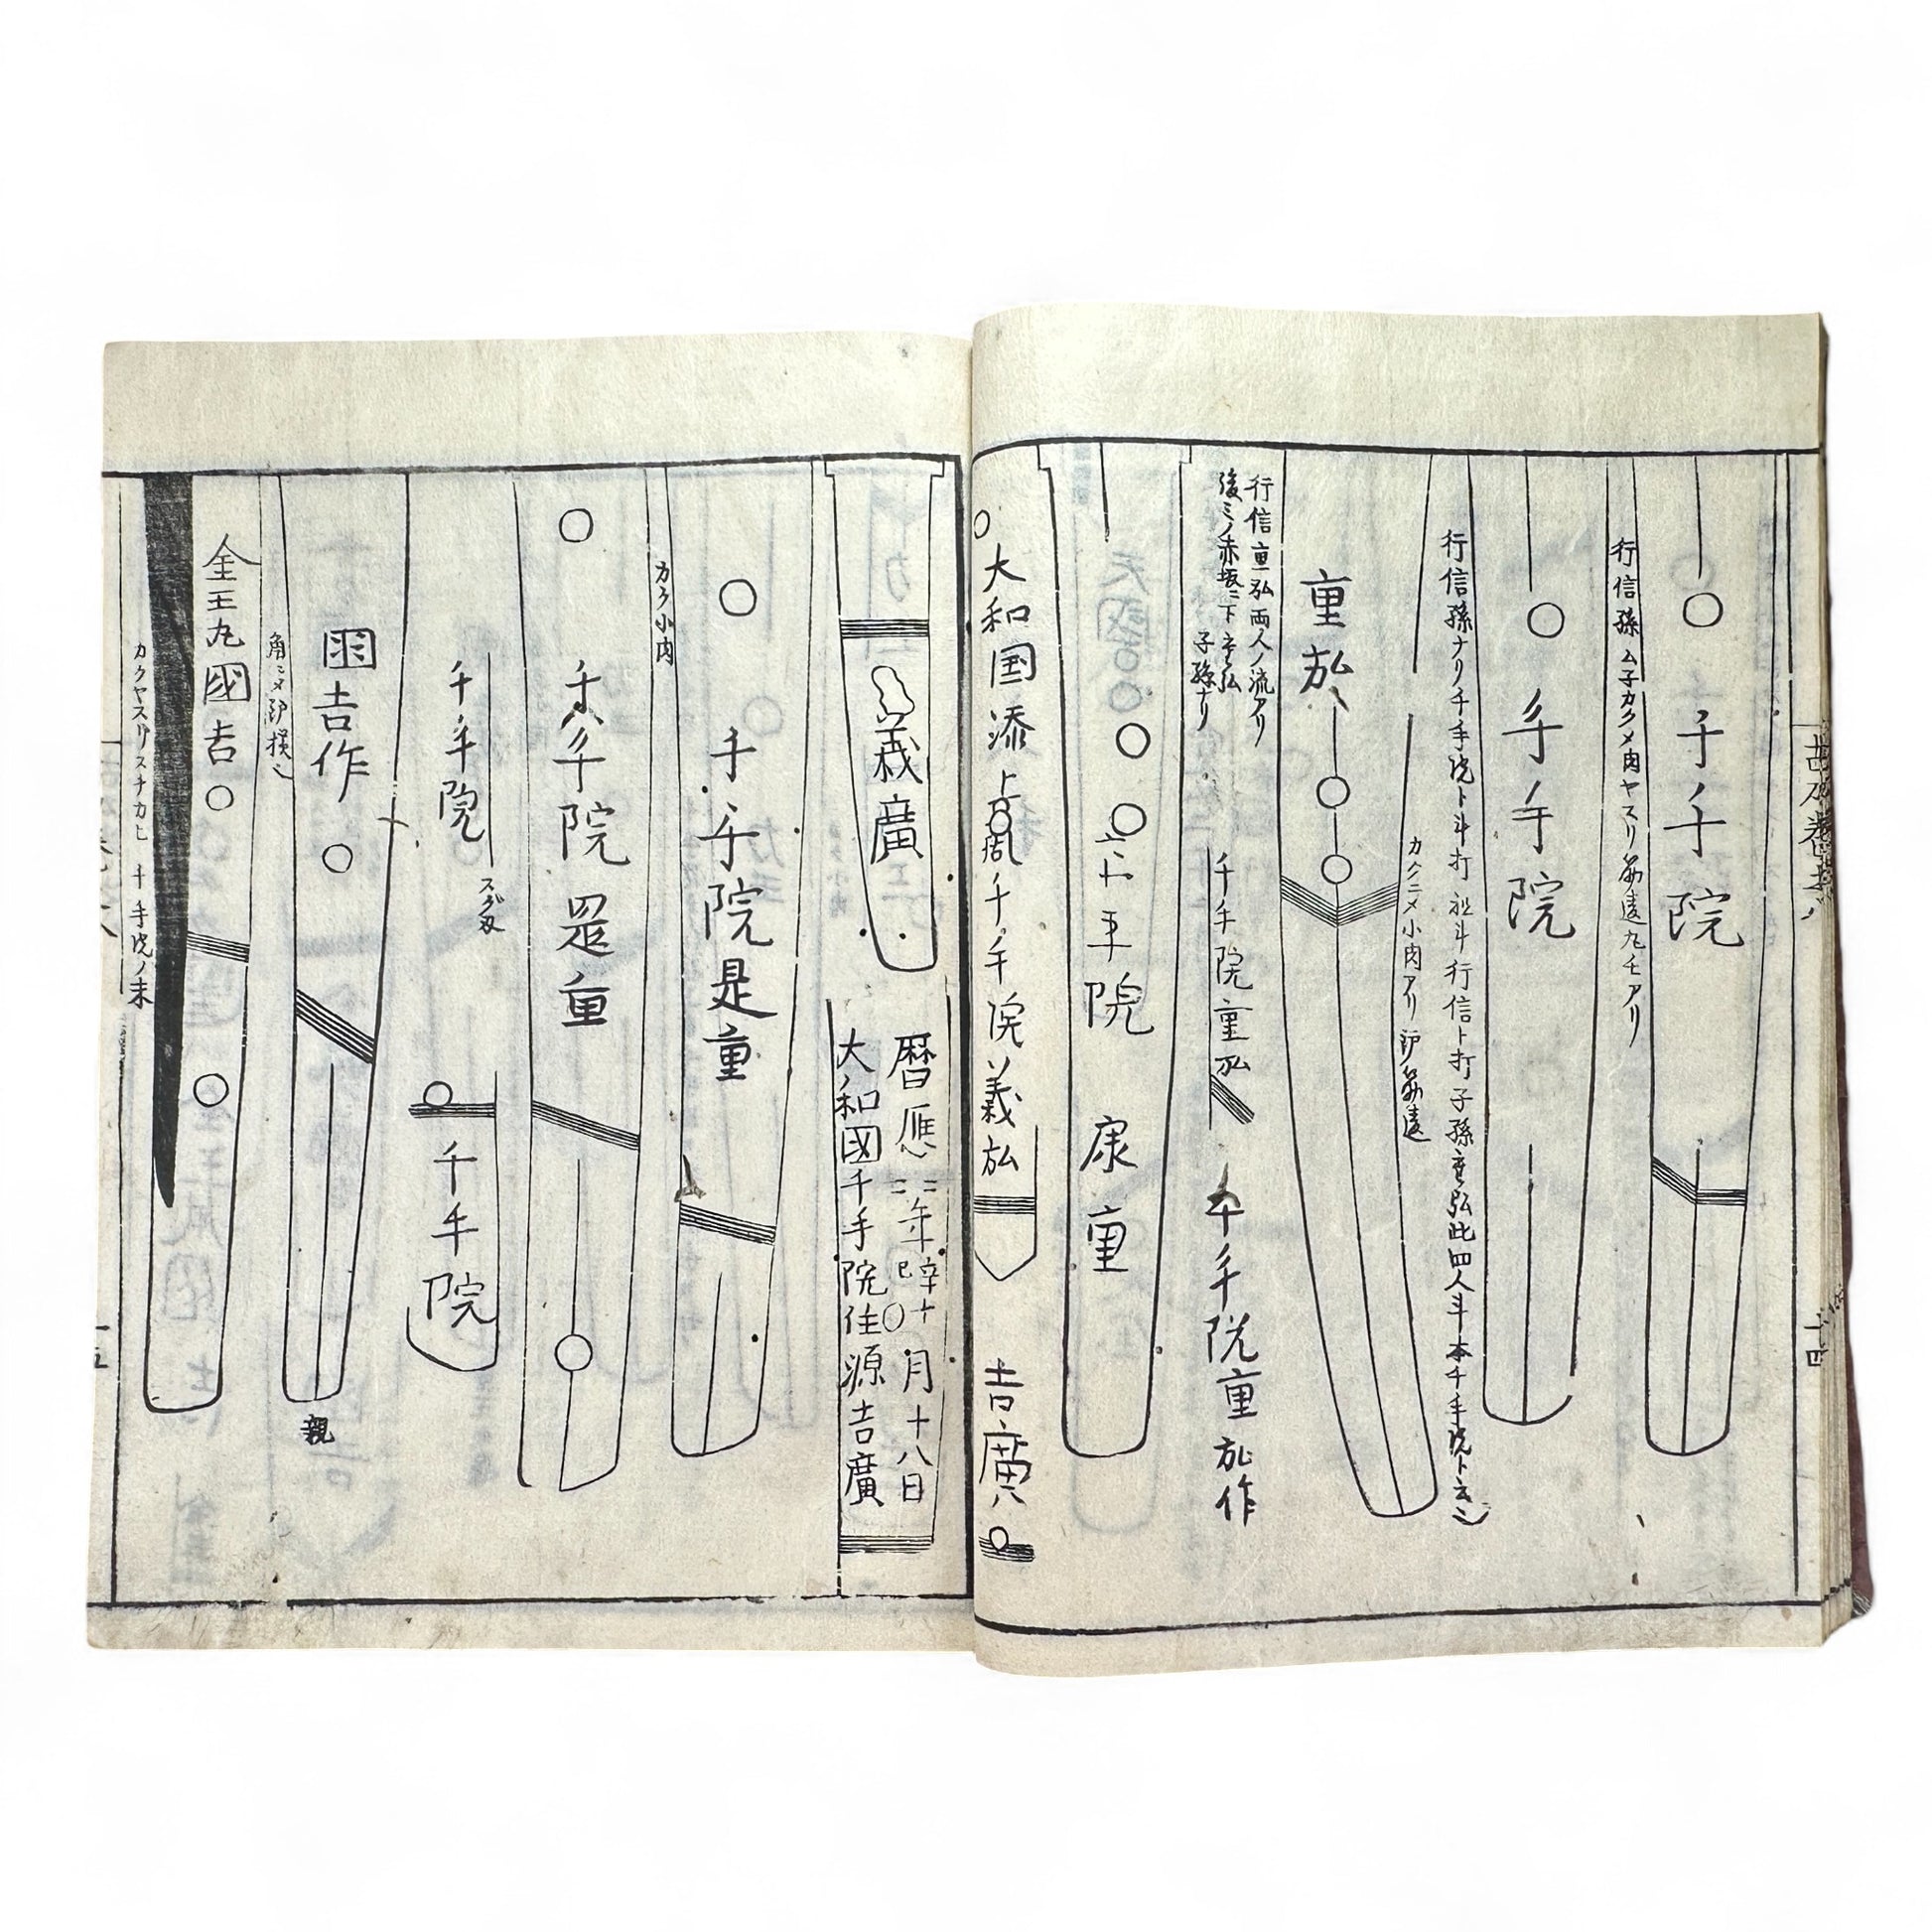 千手院
行信孫ム子カクメ肉ヤスリ筋違九モアリ
千手院
行信孫ナリ千手院ト斗打 行信ト打 子孫重弘此四人斗本千手院ト云
カクニメ小肉アリ
重弘
行信重弘両人ノ流アリ
後ミノ赤坂ニ下重弘
子孫ナリ
千手院重弘
千手院重弘作
千手院 康重
大和国添上
千手院義弘
吉廣
義廣
暦應二二年辛巳十月十八日
大和國千手院住源吉廣
千手院是重
カク小肉
千手院是重
千手院
スグ刄
千手院
國吉作
親
金王丸國吉
カクヤスリスチカヒ 千手院ノ末
十五